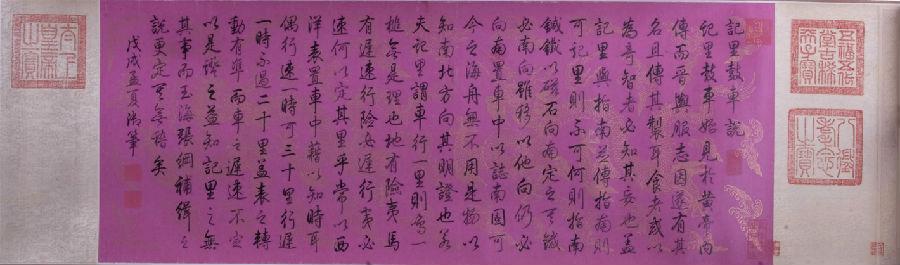 五福五代
堂古稀
天子寶
八徵
耄念
之寶
記里鼓車說
記里鼓車始見於黃帝內
傳而晉輿服志因遂有其
名且傳其製耳食者或以
為奇智者必知其妄也蓋
記里與指南並傳指南則
可記里則不可何則指南
鍼鐵以磁石向南定之鍼
必南向雖移以他向仍必
向南置車中以誌南固可
今之海舟無不用是物以
知南北方向其明證也若
夫記里謂車行一里則鳴一
槌無是理也地有險夷馬
有遲速行險必遲行夷必
速何以定其里乎常以西
洋表置車中藉以知時耳
偶行速一時可三十里行遲
一時不過二十里蓋表之轉
動有準而車之遲速不定
以是證之益知記里之無
其事而玉海張綱補緝之
說更定矣
戊戌孟夏御筆
太上
皇帝
之寶